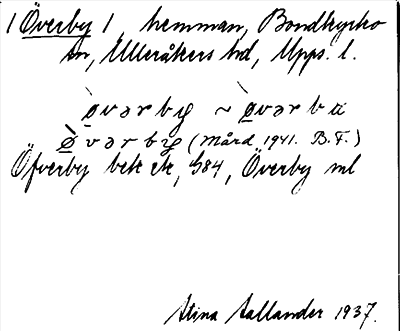 1 Överby 1, hemman, Bondkyrko
sn, Ulleråkers hd, Upps. l.
ø̀vərby ~ ø̀vərbʉ
ø̀vərby (Mård 1941. B.F.)
Öfverby bek ek, G84, Överby ml
Stina Sallander 1937.